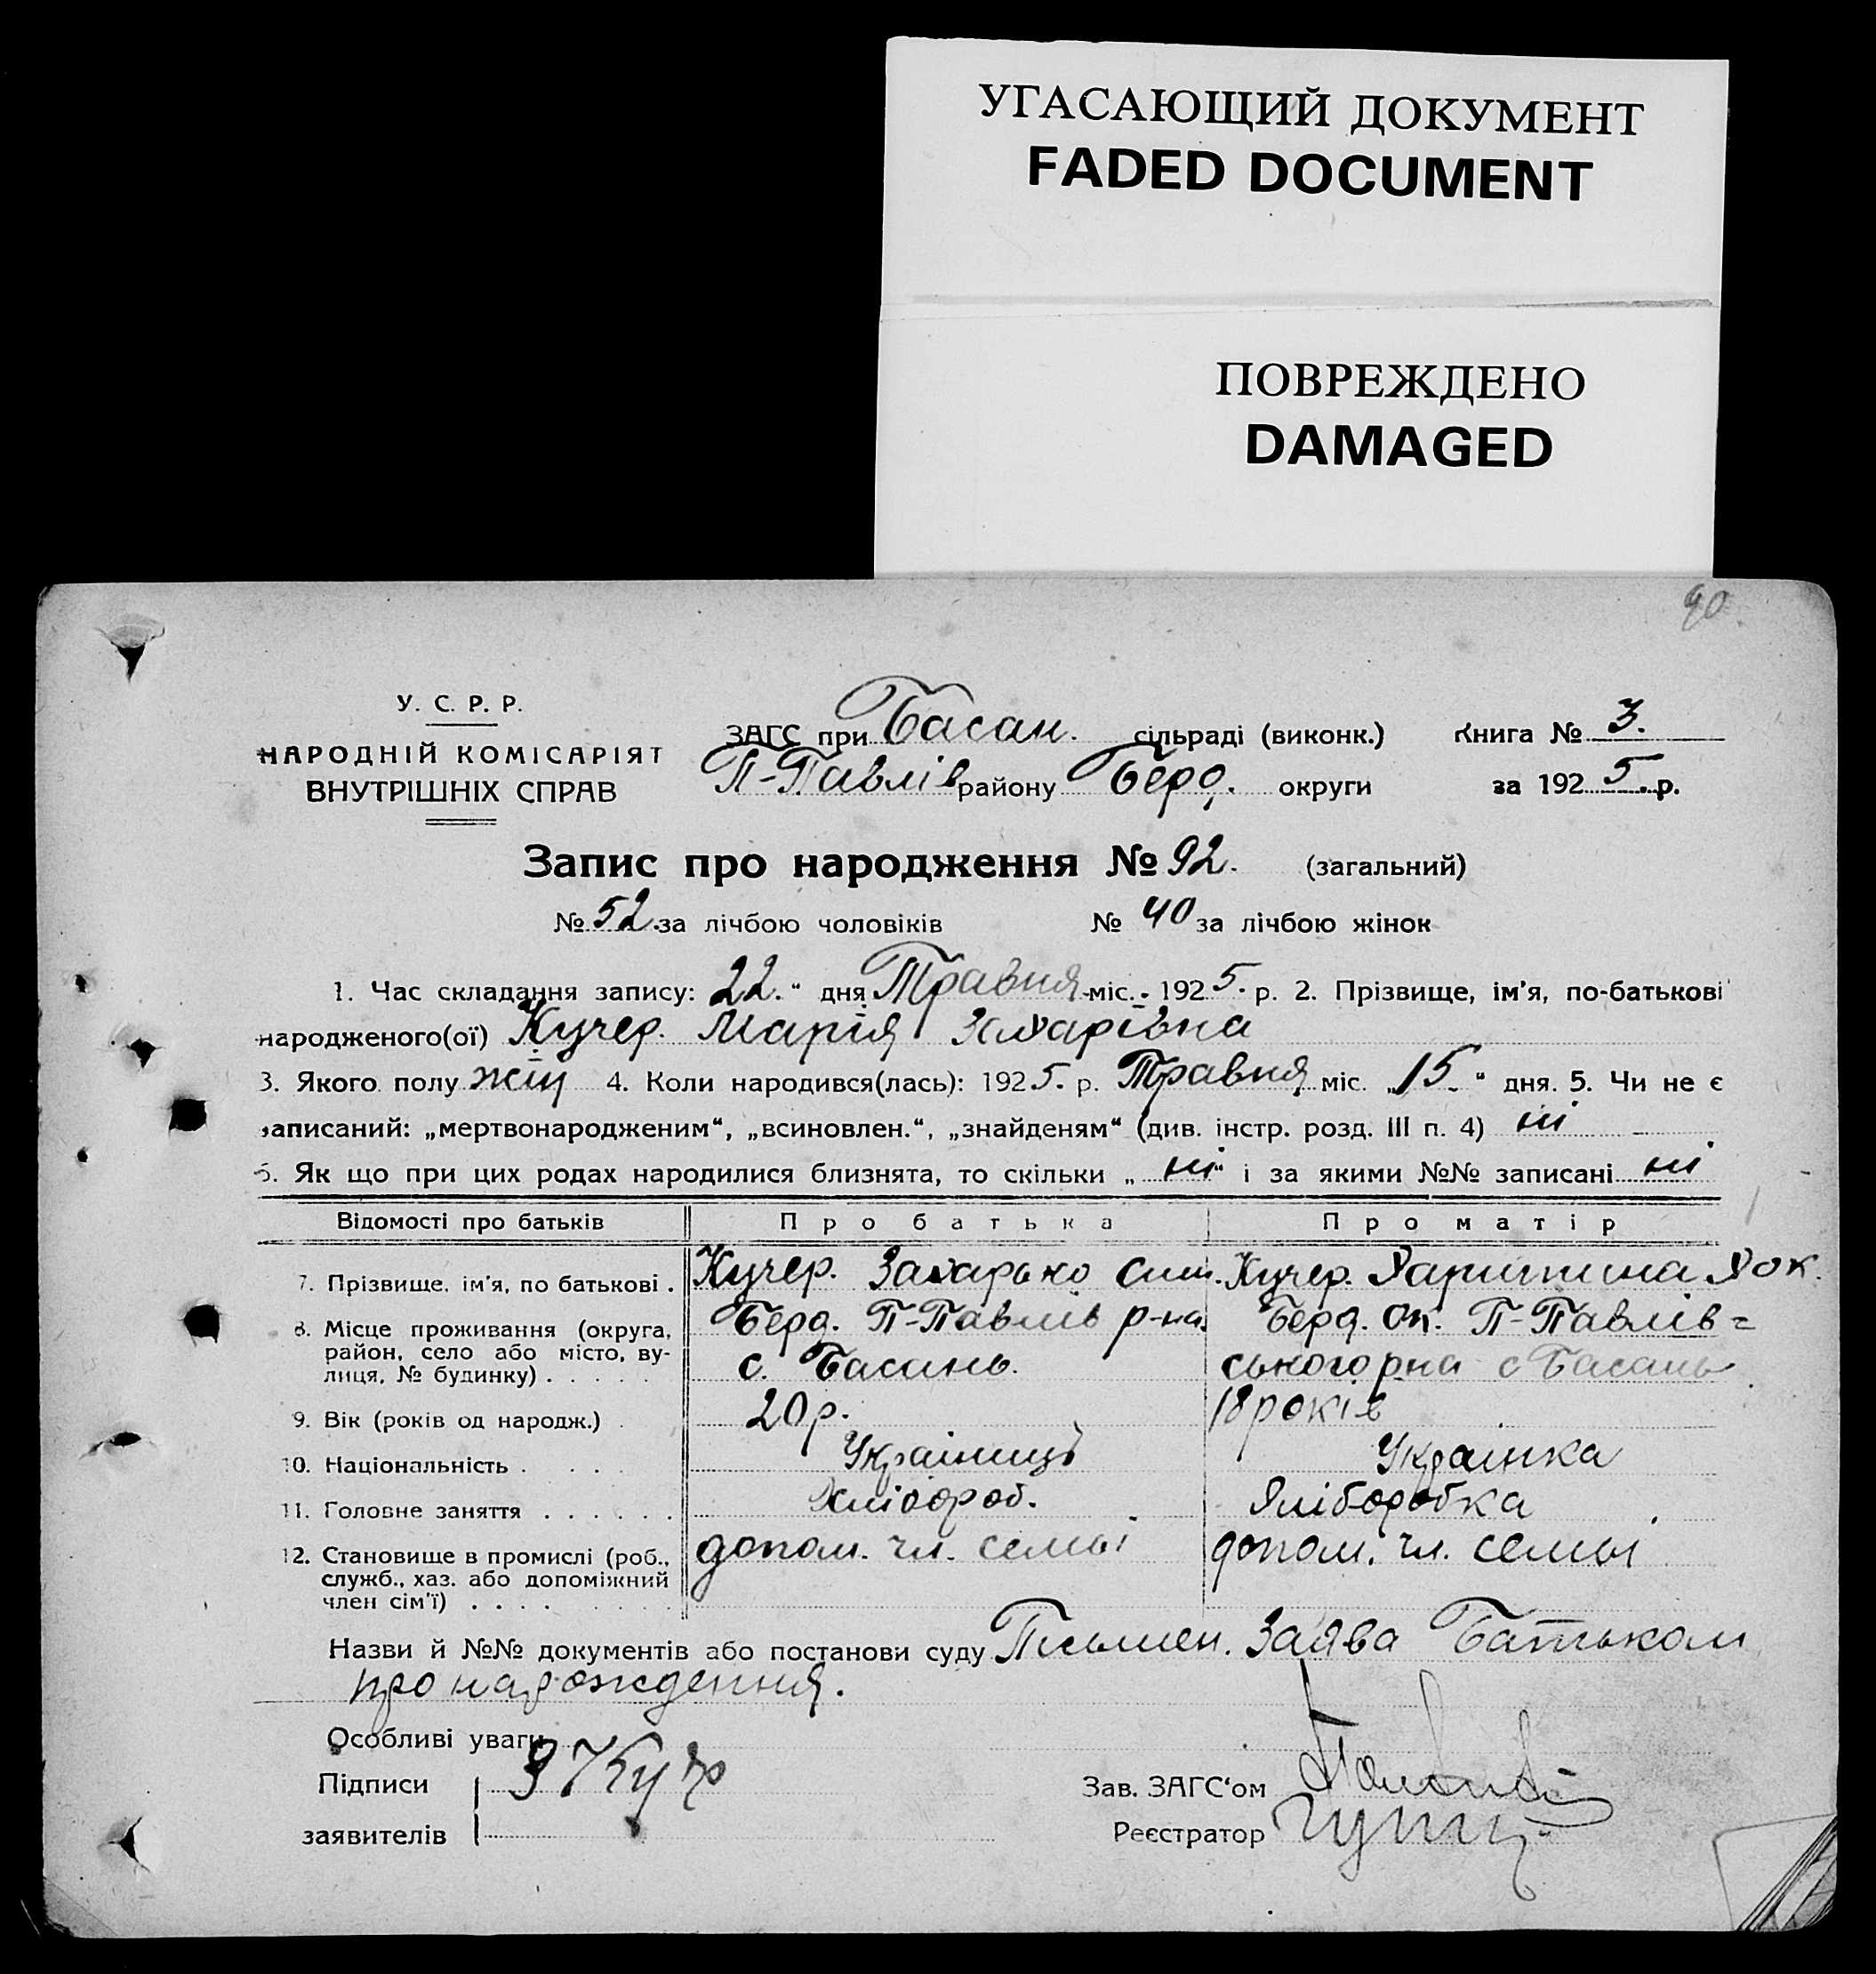 УГАСАЮЩИЙ ДОКУМЕНТ
FADED DOCUMENT
ПОВРЕЖДЕНО
DAMAGED
90
У. С. Р. Р.
НАРОДНІЙ КОМІСАРІЯТ
ВНУТРІШНІХ СПРАВ
ЗАГС при Басан. сільраді (виконк.) Книга № 3.
П-Павлів району Берд. округи за 1925 р.
Запис про народження № 92. (загальний)
№ 52 за лічбою чоловіків № 40 за лічбою жінок
1. Час складання запису: 22." дня Травня міс. 1925. р. 2. Прізвище, ім'я, по-батькові
народженого(ої) Кучер. Марія Захарівна
3. Якого полу жін 4. Коли народився(лась): 1925. р. Травня міс. „15." дня. 5. Чи не є
записаний: „мертвонародженим“, „всиновлен.“, „знайденям“ (див. інстр. розд. III п. 4) ні
6. Як що при цих родах народилися близнята, то скільки „ні“ і за якими №№ записані ні
Відомості про батьків Про батька Про матір
7. Прізвище, ім'я, по батькові . Кучер. Захарько Сим. Кучер. Харитина Хок.
8. Місце проживання (округа, Берд. П-Павлів р-на Берд. ок. П-Павлів=
район, село або місто, ву- с. Басань. ського рна с Басань
лиця, № будинку) . . . . .
9. Вік (років од народж.) . 20 р. 18 років
10. Національність . . . . Українець Українка
11. Головне заняття . . . . . . Хлібороб. Хліборобка
12. Становище в промислі (роб., допом. чл. семьї допом. чл. семьї
служб., хаз. або допоміжний
член сім'ї) . . . .
Назви й №№ документів або постанови суду Письмен. Заява Батьком
про народження.
Особливі уваги
Підписи З Кучер
Зав. ЗАГС'ом
заявителів
Реєстратор